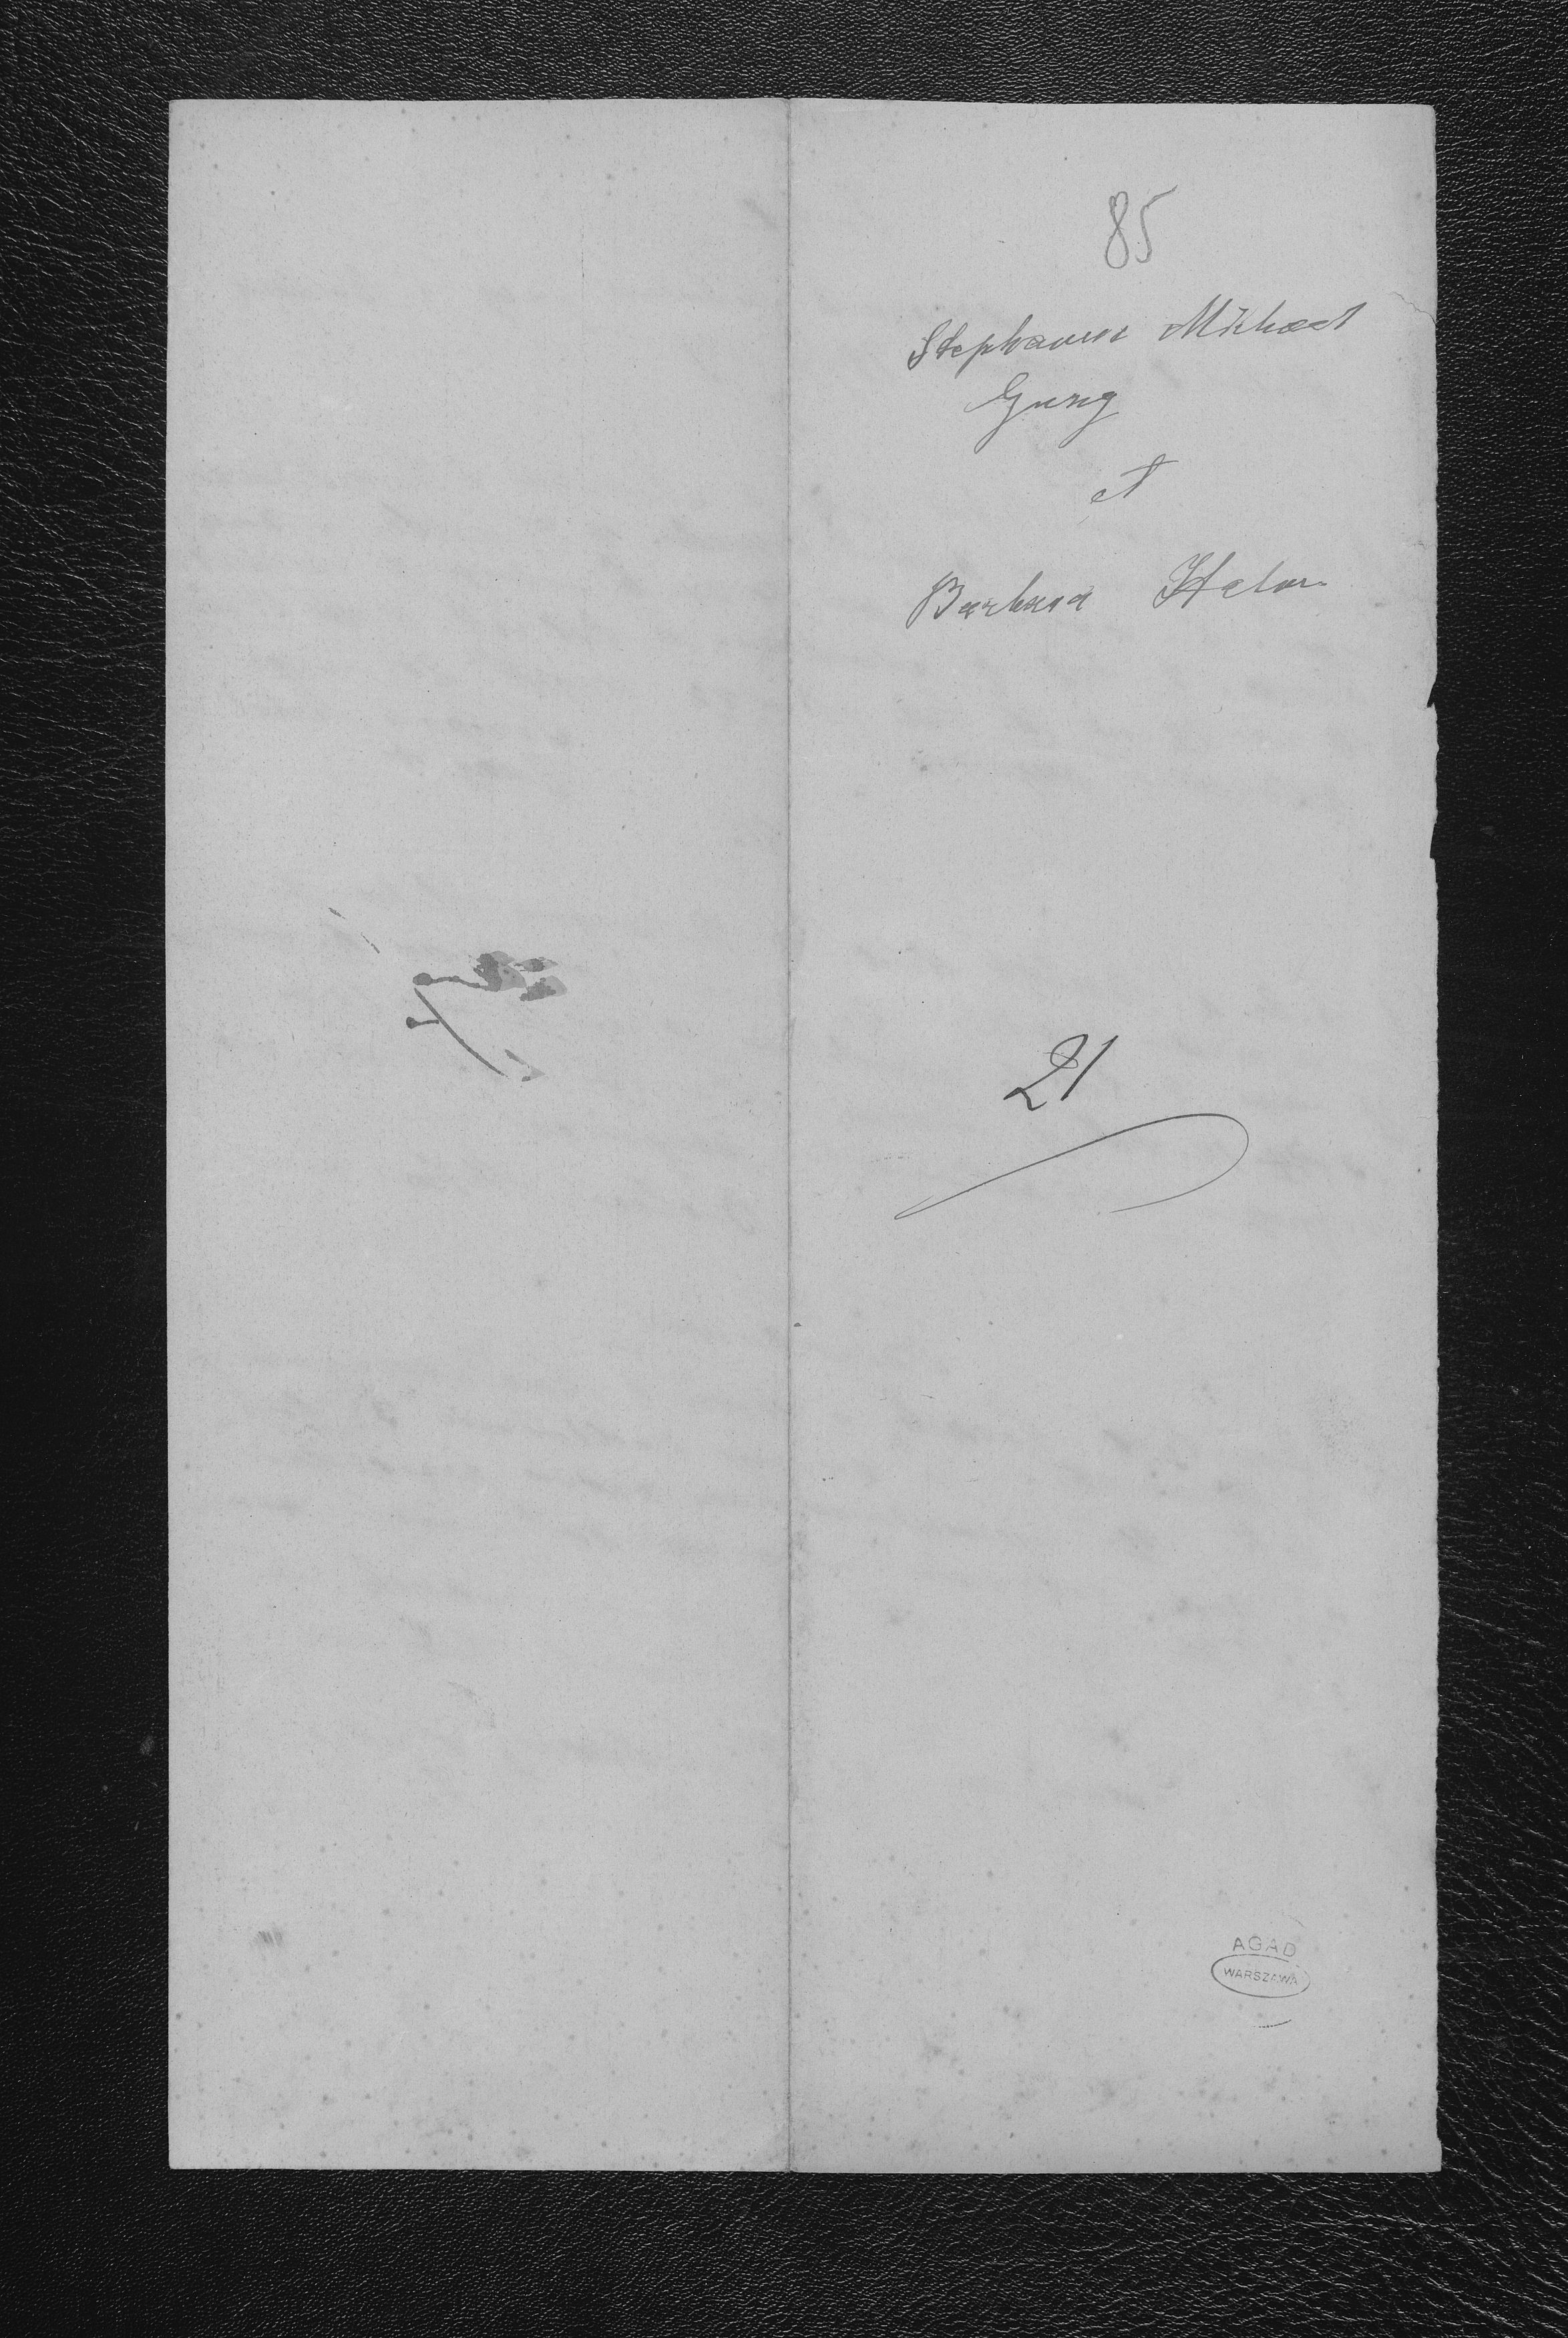 85
Stephanus Michael
Gurg
et
Barbara
21
AGAD
WARSZAWA